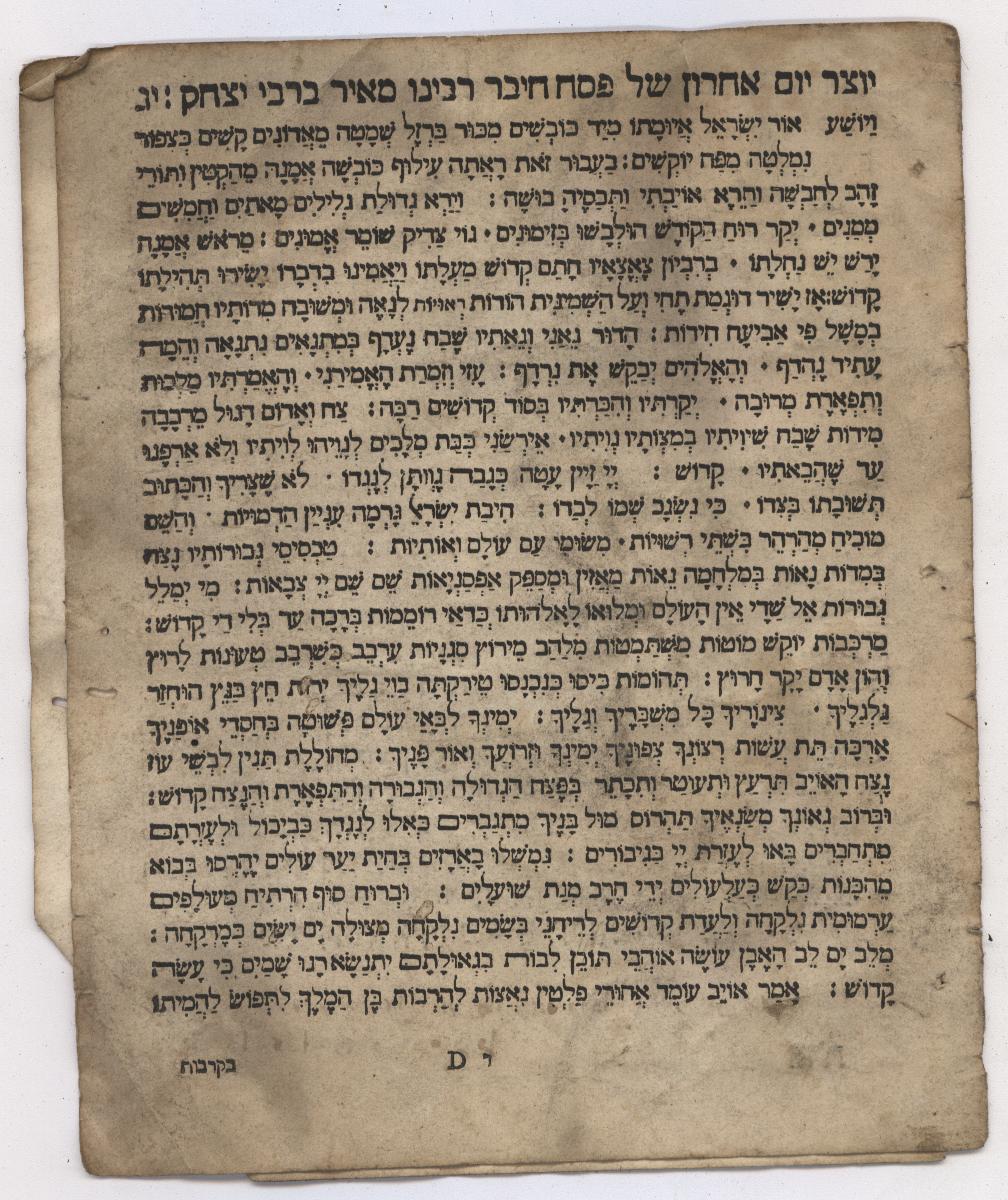 יוצר יום אחרון של פסח חיבר רבינו מאיר ברבי יצחק : יג
וַיּוֹשַׁע אוֹר יִשְׂרָאֵל אֲיוּמָתוֹ מִיַד כּוֹבְשִׁים מִכּוּר בַּרְזֶל שְׁמָטָהּ מֵאֲדוֹנִים קָשִׁים כְּצִפּוֹר
נִמְלְטָה מִפַּח יוֹקְשִׁים : בַּעֲבוּר זֹאת רָאֲתָה עִילוּף כּוֹבְשָׁהּ אֱמָנָהּ מֵהַקְטִין וְתוֹרֵי
זָהָב לְחָבְשָׁהּ וַתֵּרֶא אוֹיַבְתִּי וּתְכַסֶּיהָ בוּשָׁה : וַיַּרְא גְדוּלַּת גְּלִילִים מָאתַיִם וַחֲמִשִּׁים
מְמַנִּים • יְקַר רוּחַ הַקּוֹדֶשׁ הוּלְבְּשׁוּ בְּזִימּוּנִים • גּוֹי צַדִּיק שׁוֹמֵר אֱמוּנִים : מֵרֹאשׁ אֲמָנָה
יָרַשׁ יֵשׁ נַחֲלָתוֹ • בְּרִבְיוֹן צֶאֱצָאָיו חָתַם קְדוֹשׁ מַעֲלָתוֹ וַיַּאֲמִינוּ בִדְבָרוֹ יָשִׁירוּ תְּהִילָתוֹ
קָדוֹשׁ : אָז יָשִׁיר דּוּגְמַת תְּחִי וְעַל הַשְּׁמִינִית הוֹרוֹת רְאוּיוֹת לְנָאֶה וּמְשׁוּבָּח מִדּוֹתָיו חֲמוּדוֹת
בְּמָשָׁל פִּי אַבִּיעָה חִידוֹת : הָדוּר נָאֵנִי וְגֵאֹתָיו שֶׁבַח נֶעֱרָף בְּמִתְגָּאִים נִתְגָּאֶה וְהֵמָּה
עָתִיד נֶהְדַּף • וְהָאֱלֹהִים יְבַקֵּשׁ אֶת נִרְדָּף : עָזִּי וְזִמְרַת הָאֱמִירַנִי • וְהֶאֱמַרְתִּיו מַלְכוּת
וְתִפְאֶרֶת מְרוּבָּה • יְקַרְתִּיו וְהִכַּרְתִּיו בְּסוֹד קְדוֹשִׁים רַבָּה : צַח וְאָדוֹם דָּגוּל מֵרְבָבָה
מִידוֹת שֶׁבַח שִׁיוִּיתִיו בְּמִצְוֹתָיו נָוִיתִיו • אֵירְשַׂנִי כְּבַת מְלָכִים לְנָוֵיהוּ לִוִּיתִיו וְלֹא אַרְפֶּנּוּ
עַד שֶׁהֲבֵאתִיו • קָדוֹשׁ : יְיָ זַיִין עָטָה כְּגֶבֶר נָוְותָן לְנֶגְדּוֹ • לֹא שֶׁצָּרִיךְ וְהַכָּתוּב
תְּשׁוּבָתוֹ בְּצִדּוֹ • כִּי נִשְׂגָּב שְׁמוֹ לְבַדּוֹ : חִיבַּת יִשְׂרָאֵל גָּרְמָה עִנְיַין הַדְמוּיוֹת • וְהַשֵּׁם
מוֹכִיחַ מְהַרְהֵר בִּשְׁתֵּי רְשׁוּיוֹת • מְשׂוּמֵי עַם עוֹלָם וְאוֹתִיוֹת : טַכְסִיסֵי גְבוּרוֹתָיו נֶצַח
בְּמִדּוֹת נָאוֹת בְּמִלְחָמָה נְאוֹת מַאֲזִין וּמְסַפֵּק אַפְסַנְיָאוֹת שֵׁם שֵׁם יְיָ צְבָאוֹת : מִי יְמַלֵּל
גְבוּרוֹת אֵל שַׁדַּי אֵין הָעוֹלָם וּמְלוֹאוֹ לֶאֱלֹהוּתוֹ כְּדַאי רוֹמֲמוֹת בְּרָכָה עַד בְּלִי דַי קָדוֹשׁ :
מַרְכְּבוֹת יוֹקֵשׁ מוֹטוֹת מִשְׁתַּמְּטוֹת מִלַּהַב מֵירוּץ סִגְנִיּוֹת עִרְבֵּב כְּשֶׁרִבֵּב טְעוּנוֹת לָרוּץ
וְהוֹן אָדָם יָקָר חָרוּץ : תְּהוֹמוֹת כִּיסּוּ כְּנִכְנְסוּ טֵירַקְתָּה בְּוַי גַלֶּיךָ יְרִית חֵץ כַּנֵּץ הוּחְזַר
גַלְגַּלֶּיךָ • צִינּוֹרֶיךָ כָּל מִשְׁבָּרֶיךָ וְגַלֶּיךָ : יְמִינְךָ לְבָאֵי עוֹלָם פְּשׁוּטָה בְּחַסְדֵי אוֹפַנֶּיךָ
אָרְכָּה תֵּת עֲשׂוֹת רְצוֹנֶךָ צְפוּנֶיךָ יְמִינְךָ וּזְרוֹעֲךָ וְאוֹר פָּנֶיךָ : מְחוֹלֶלֶת תַּנִּין לִבְשִׁי עוֹז
נֶצַח הָאוֹיֵב תִּרְעַץ וּתְעוּטַּר וְתוּכְתַּר בְּפֶצַח הַגְּדוּלָּה וְהַגְּבוּרָה וְהַתִּפְאֶרֶת וְהַנֶּצַח קָדוֹשׁ :
וּבְרוֹב גְּאוֹנְךָ מְשַׂנְאֶיךָ תַּהֲרוֹס מוּל בָּנֶיךָ מִתְגַּבְּרִים כְּאִלּוּ לְנֶגְדְּךָ כִּבְיָכוֹל וּלְעֶזְרָתָם
מִתְחַבְּרִים בָּאוּ לְעֶזְרַת יְיָ בַּגִּיבּוֹרִים : נִמְשְׁלוּ בַאֲרָזִים בְּחַיַּת יַעַר עוֹלִים יֶהָרְסוּ בְּבוֹא
מֵהַכְנּוֹת כְּקַשׁ כְּעַלְעוֹלִים יְדֵי חֶרֶב מְנַת שׁוּעָלִים : וּבְרוּחַ סוּף הִרְתִּיחַ מְעוּלָּפִים
עַרְמוּמִית נִלְקְחָה וְלַעֲדַת קְדוֹשִׁים לְרֵיחָנֵי בְּשָׂמִים נִלְקְחָה מְצוּלָה יָם יָשִׂים כַּמֶּרְקָחָה :
מִלֵּב יָם לֵב הָאֶבֶן עוֹשֶׂה אוֹהֲבֵי תּוֹכֵן לִבּוֹת בִּגְאוּלָּתָם יִתְנַשֵּׂא רָנּוּ שָׁמַיִם כִּי עָשָׂה
קָדוֹשׁ : אָמַר אוֹיֵב עוֹמֵד אֲחוֹרֵי פַלְטִין נְאָצוֹת לְהַרְבּוֹת בֶּן הַמֶּלֶךְ לִתְפּוֹשׂ לַהֲמִיתוֹ
י D
בקרבות